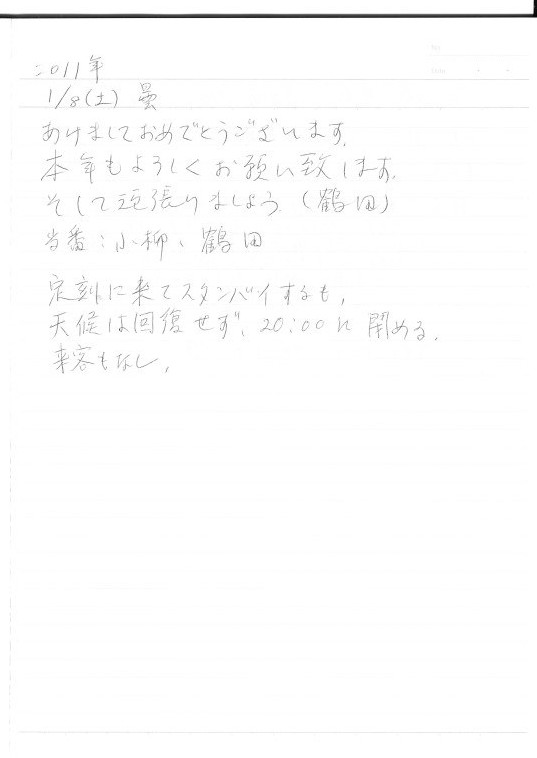 2011年
1/8(土) 曇
あけましておめでとうございます。
本年もよろしくお願い致します。
そして頑張りましょう。(鶴田)
当番:小柳、鶴田
定刻に来てスタンバイするも、
天候は回復せず、20:00に閉める。
来客もなし。